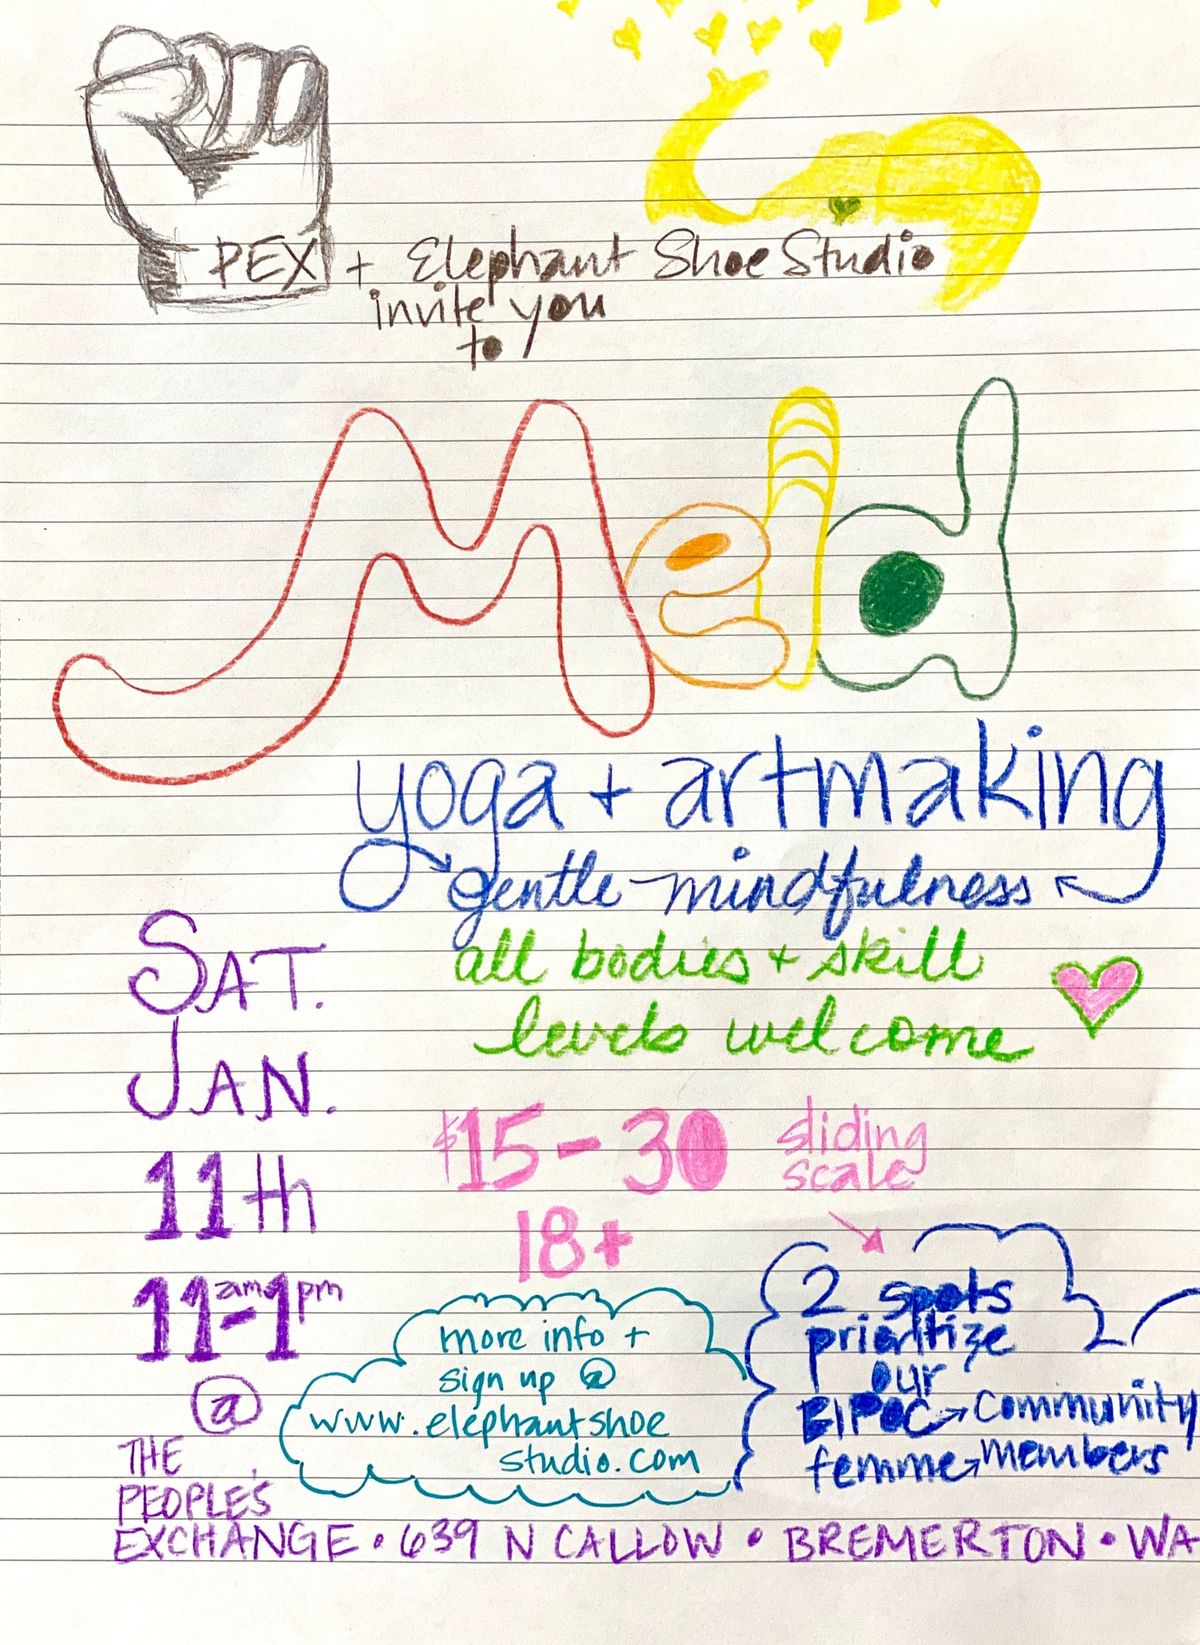 PEX + Elephant Shoe Studio
invite you
to
Meld
yoga + artmaking
gentle mindfulness
all bodies + skill
levels welcome
SAT.
JAN.
11th
11am-1pm
@
THE
PEOPLE'S
EXCHANGE • 639 N CALLOW • BREMERTON • WA
$15-30 sliding
scale
18+
more info +
sign up @
www.elephantshoe
studio.com
2 spots
prioritize
our
BIPOC → community
femme → members